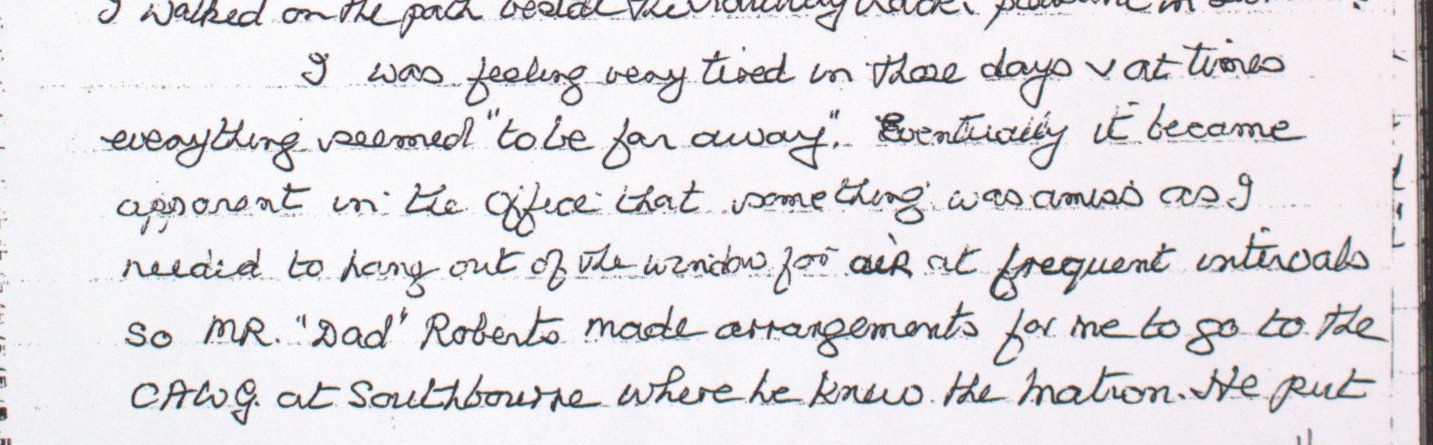 I walked on the path beside the railway track,
I was feeling very tired in those days & at times
everything seemed "to be far away". Eventually it became
apparent in the office that something was amiss as I
needed to hang out of the window for air at frequent intervals
so MR. "Dad" Roberts made arrangements for me to go to the
CAWG. at Southbourne where he knew the Matron. He put